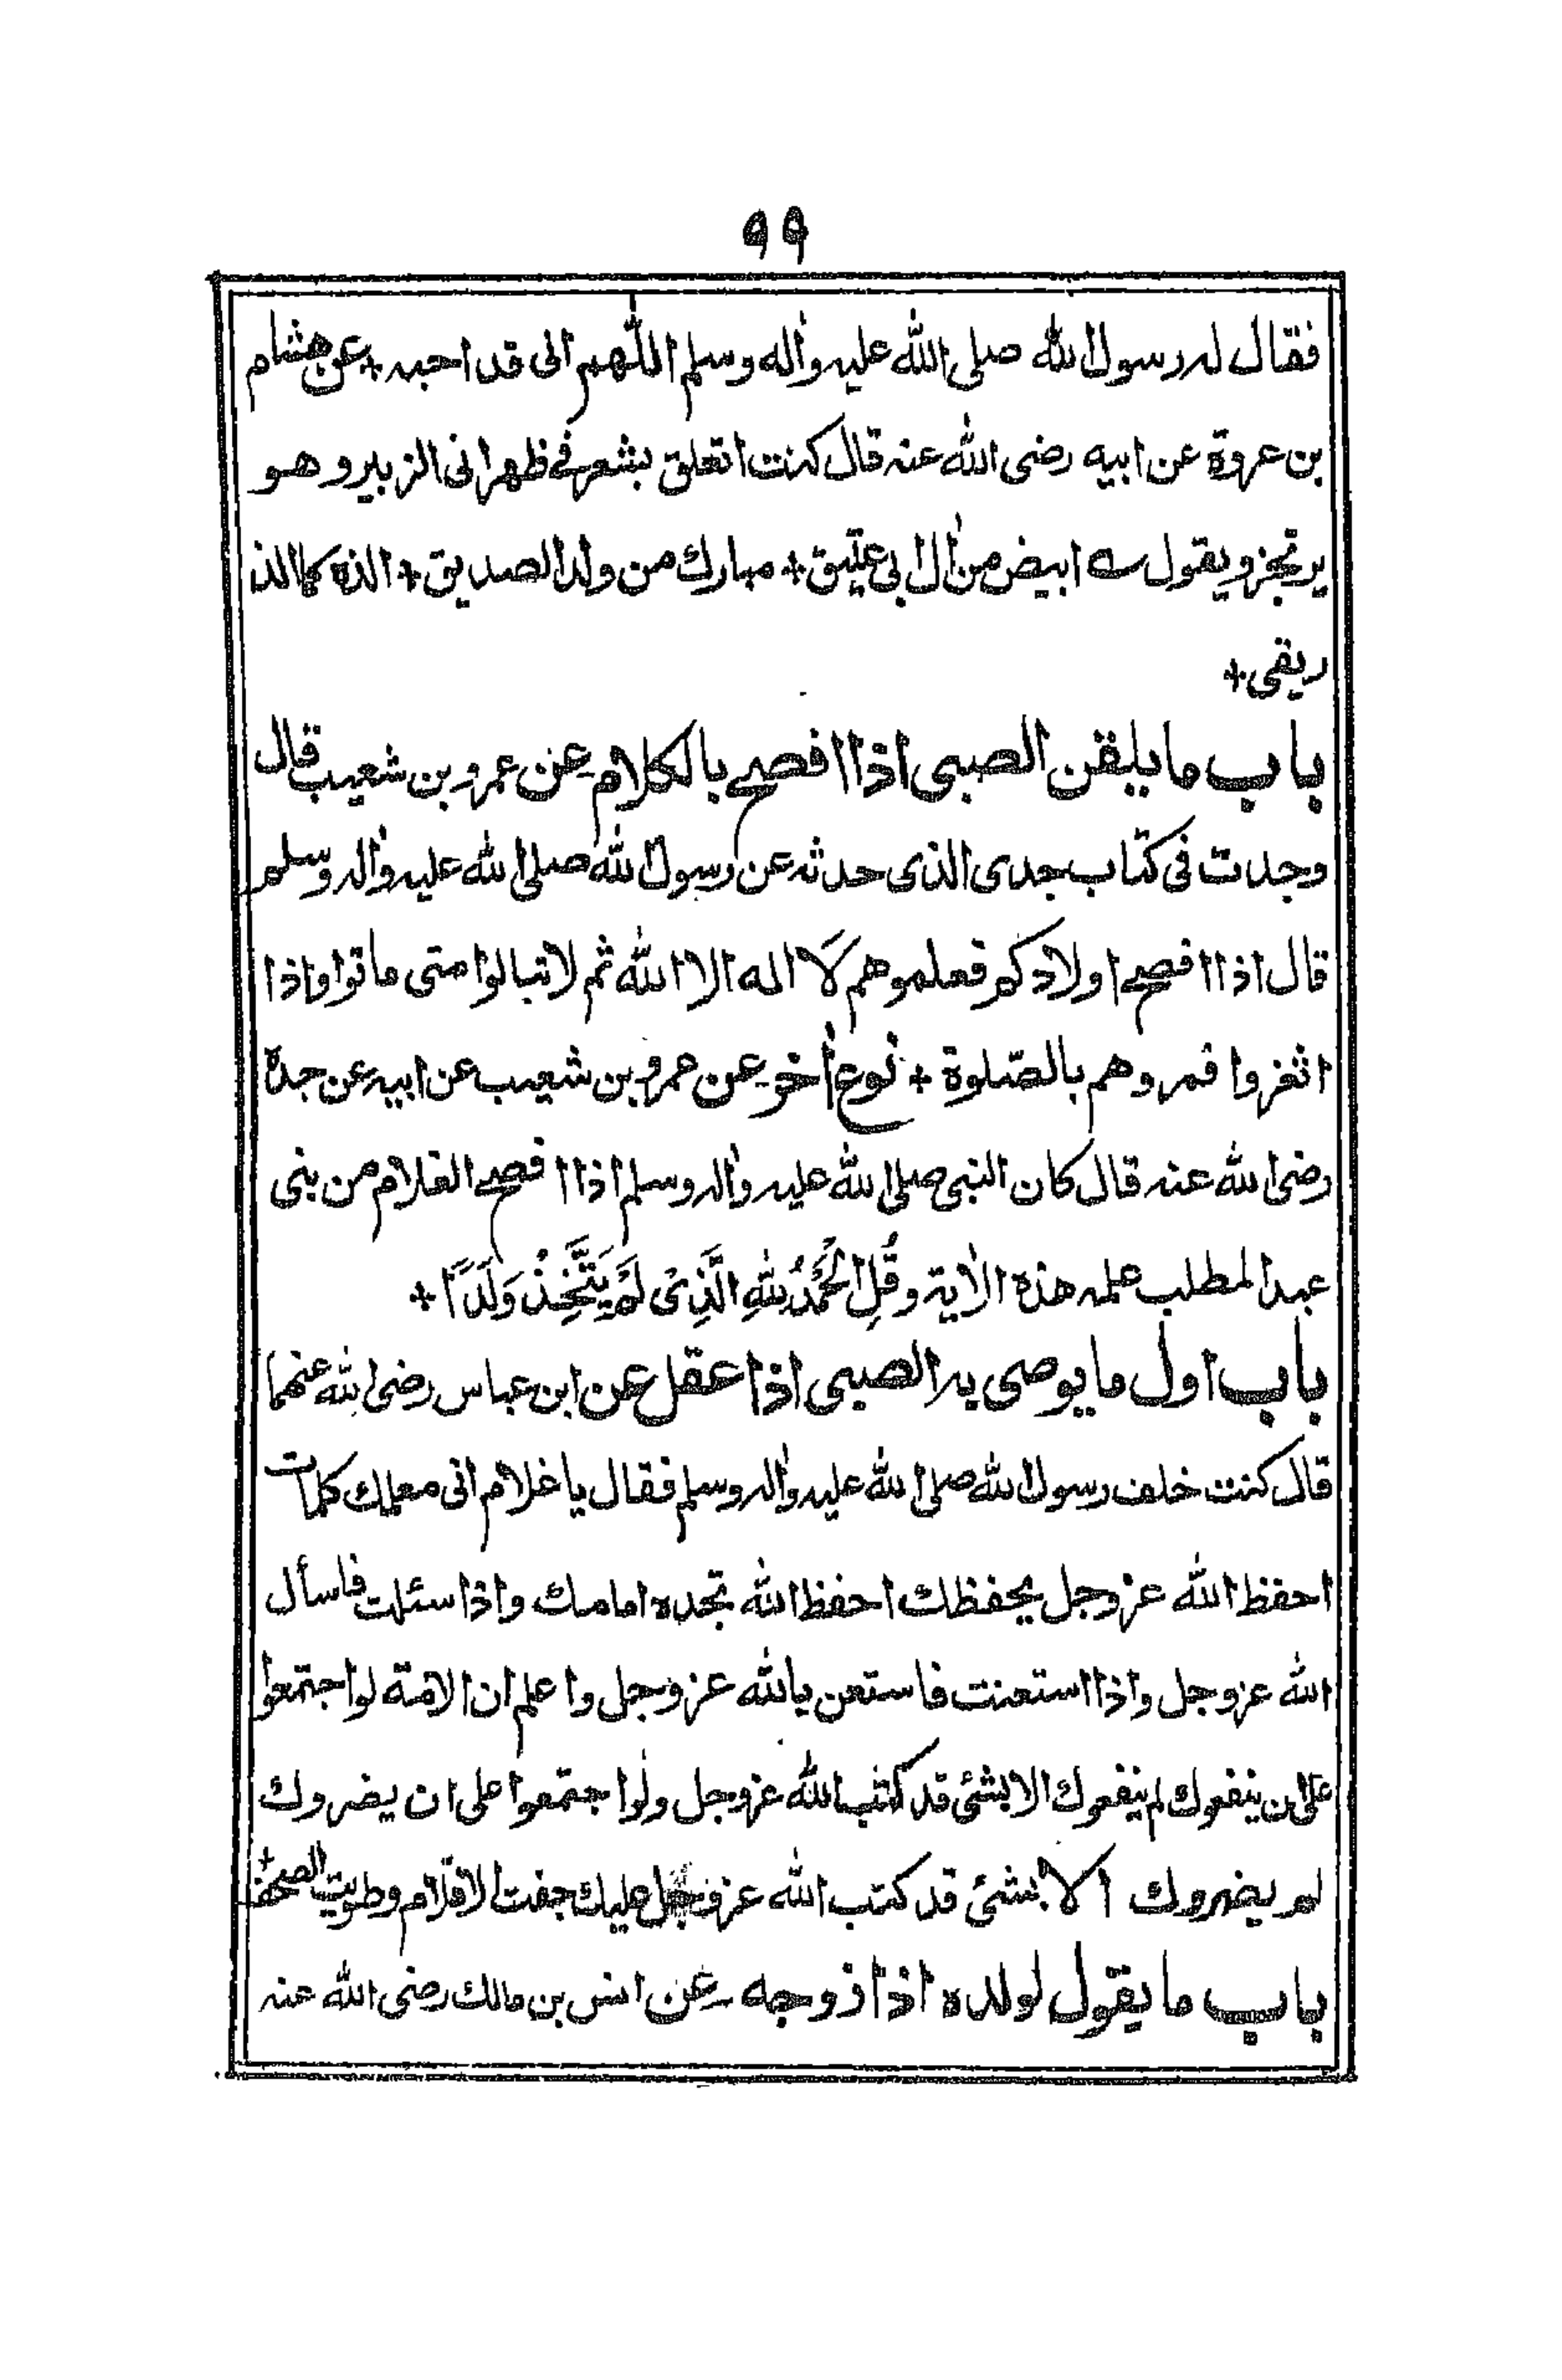 ٩٩
فقال له رسول الله صلى الله عليه واٰله وسلم اللّٰهم انى قد احبه + عن هشام
بن عروة عن ابيه رضى الله عنه قال كنت اتعلق بشعر فى ظهر ابى الزبير وهو
يرتجز ويقول ؎ ابيض من اٰل ابى عتيق + مبارك من ولد الصديق + الذه كما الذ
ريقى +
باب ما يلقن الصبى اذا افصح بالكلام عن عمرو بن شعيب قال
وجدت فى كتاب جدى الذى حدثه عن رسول الله صلى الله عليه واٰله وسلم
قال اذا افصح اولادكم فعلموهم لَا اله الا الله ثم لا تبالوا متى ماتوا واذا
اثغروا فمروهم بالصّلوة + نوع اٰخر عن عمرو بن شعيب عن ابيه عن جده
رضى الله عنه قال كان النبى صلى الله عليه واٰله وسلم اذا افصح الغلام من بنى
عبد المطلب علمه هذه الاٰية وقُلِ الْحَمْدُ لِلّٰهِ الَّذِىْ لَمْ يَتَّخِذْ وَلَدًا +
باب اول ما يوصى به الصبى اذا عقل عن ابن عباس رضى الله عنهما
قال كنت خلف رسول الله صلى الله عليه واٰله وسلم فقال يا غلام انى معلمك كلمات
احفظ الله عز وجل يحفظك احفظ الله تجده امامك واذا سئلت فاسأل
الله عز وجل واذا استعنت فاستعن بالله عز وجل واعلم ان الامة لو اجتمعوا
على ان ينفعوك لم ينفعوك الا بشئ قد كتب الله عز وجل ولو اجتمعوا على ان يضروك
لم يضروك الا بشئ قد كتب الله عز وجل عليك جفت الاقلام وطويت الصحف +
باب ما يقول لولده اذا زوجه عن انس بن مالك رضى الله عنه